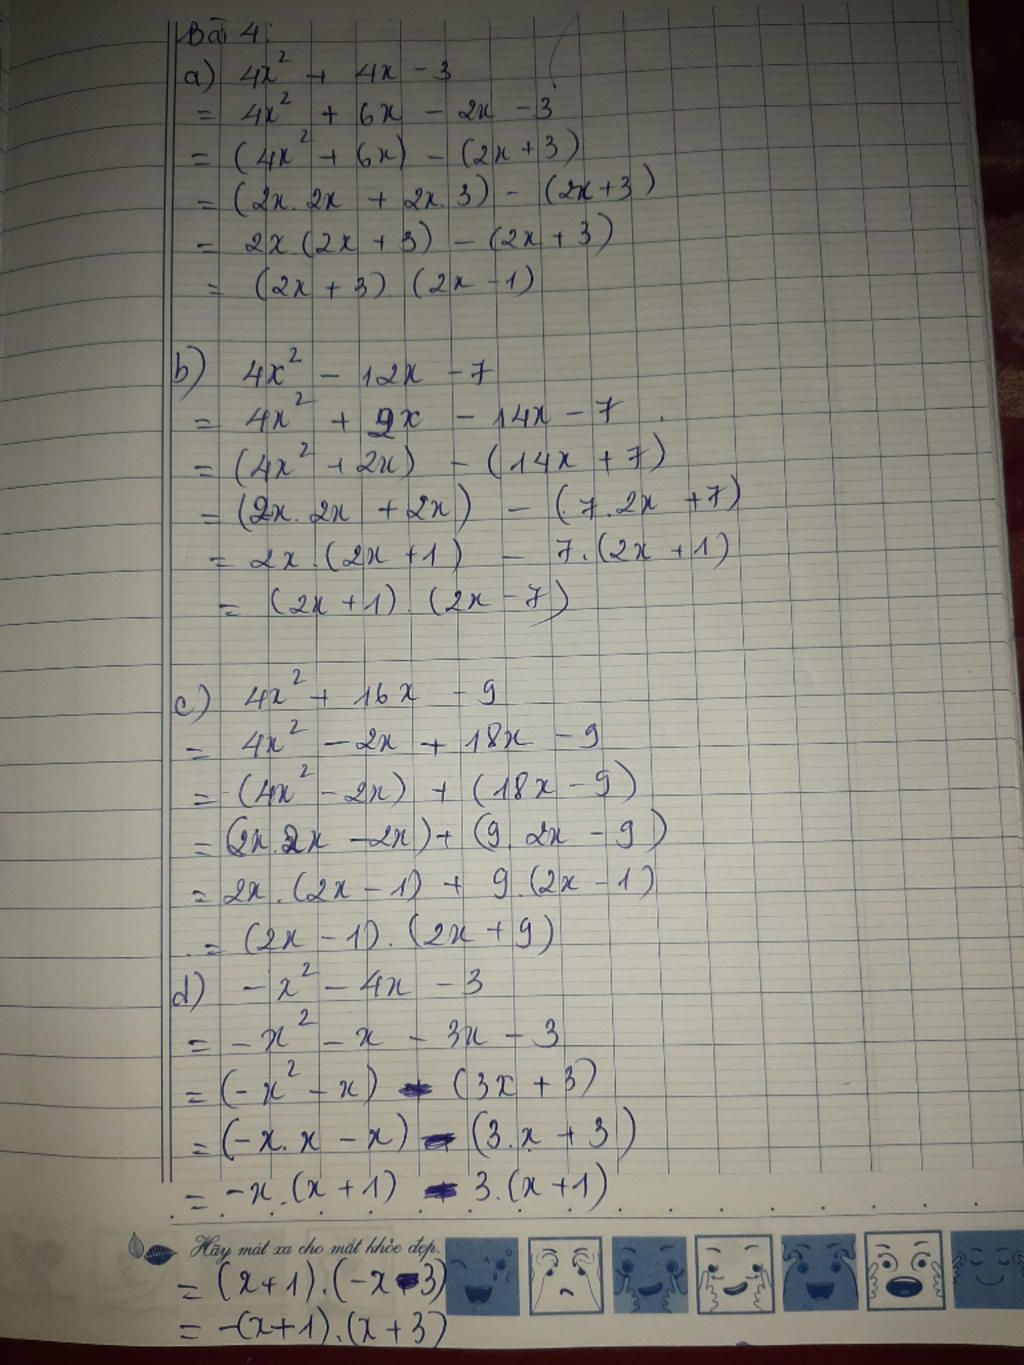 Bài 4:
a) 4x² + 4x - 3
= 4x² + 6x - 2x - 3
= (4x² + 6x) - (2x + 3)
= (2x. 2x + 2x. 3) - (2x + 3)
= 2x (2x + 3) - (2x + 3)
= (2x + 3). (2x - 1)
b) 4x² - 12x - 7
= 4x² + 2x - 14x - 7
= (4x² + 2x) - (14x + 7)
= (2x. 2x + 2x) - (7. 2x + 7)
= 2x. (2x + 1) - 7. (2x + 1)
= (2x + 1). (2x - 7)
c) 4x² + 16x - 9
= 4x² - 2x + 18x - 9
= (4x² - 2x) + (18x - 9)
= (2x. 2x - 2x) + (9. 2x - 9)
= 2x. (2x - 1) + 9. (2x - 1)
= (2x - 1). (2x + 9)
d) - x² - 4x - 3
= - x² - x - 3x - 3
= (- x² - x) - (3x + 3)
= (- x. x - x) - (3. x + 3)
= - x. (x + 1) - 3. (x + 1)
Hãy mát xa cho mắt khỏe đẹp.
= (x + 1). (-x - 3)
= -(x + 1). (x + 3)